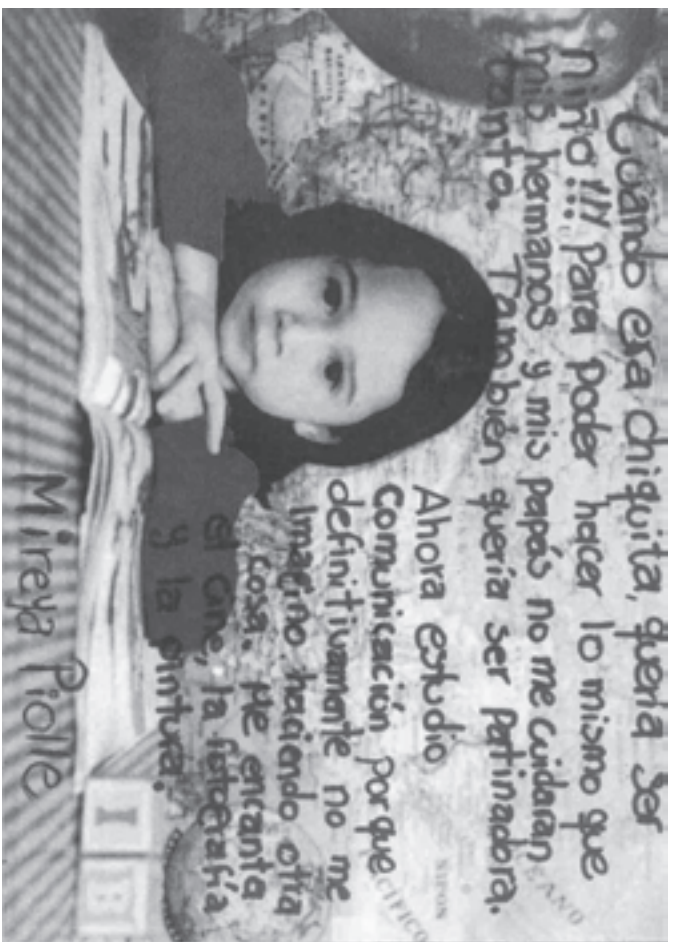 Cuando era chiquita, quería ser
niño!!! Para poder hacer lo mismo que
mis hermanos y mis papás no me cuidaran
tanto. También quería ser patinadora.
Ahora estudio
comunicación porque
definitivamente no me
imagino haciendo otra
cosa. Me encanta
el cine, la fotografía
y la pintura.
Mireya Piolle
I B
NIPON